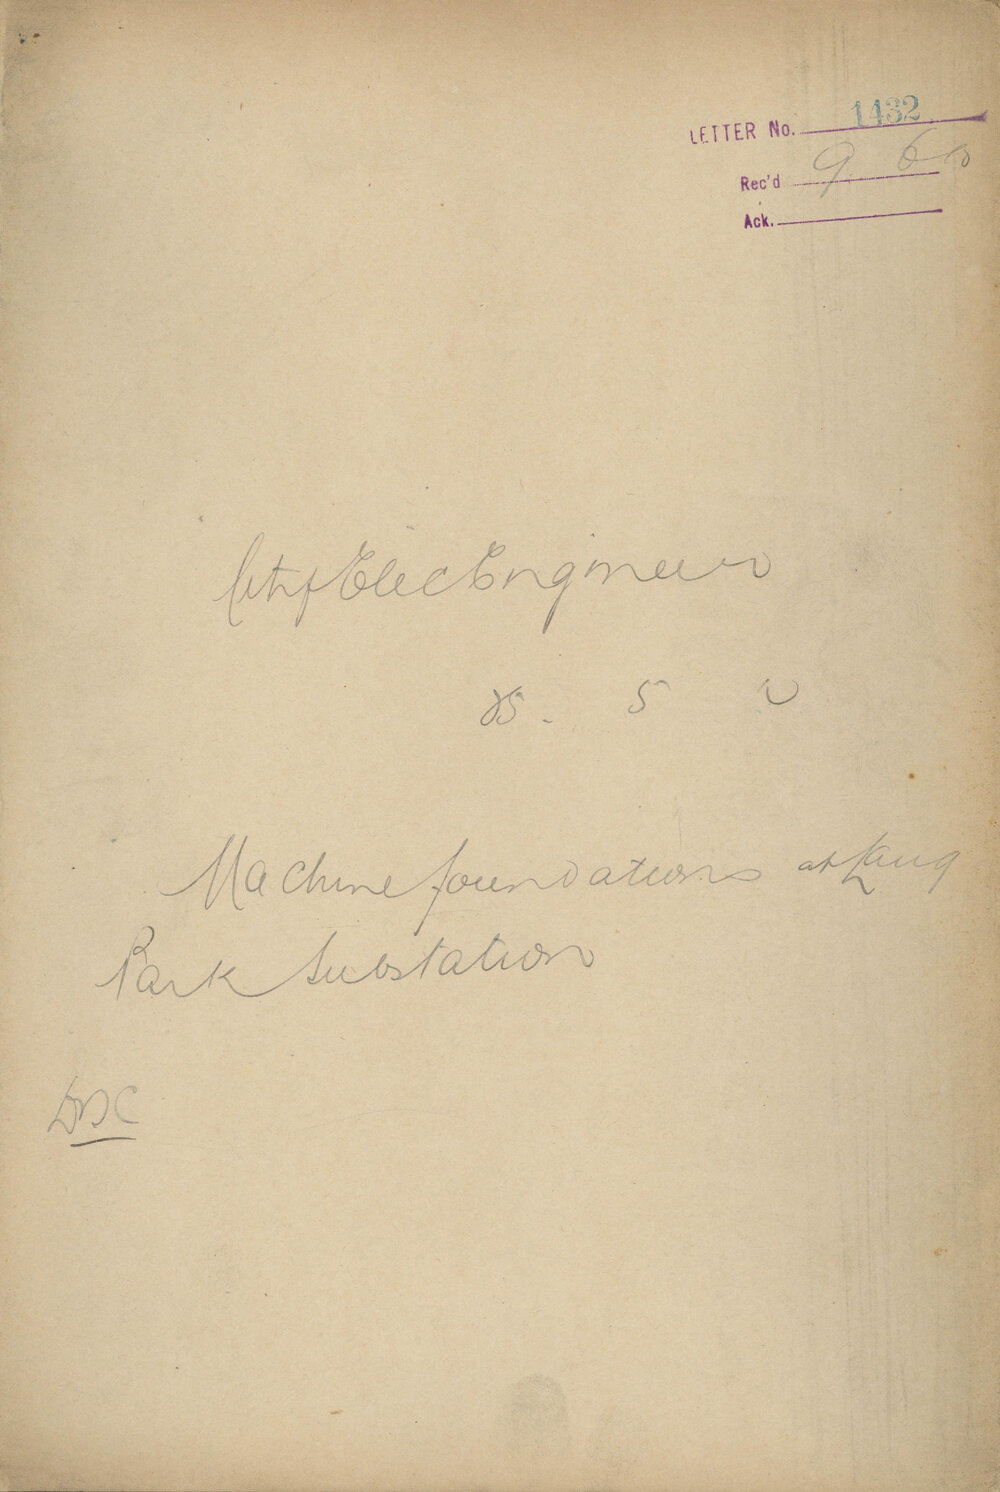 LETTER No. 1432
Rec'd 9. 6
Ack.
City Elec Engineer
5
Machine foundations at Lang
Park Substation